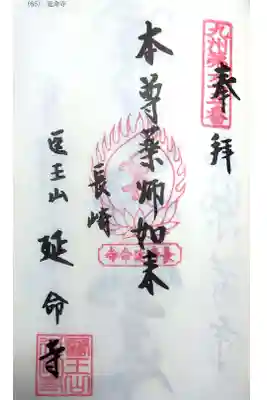 (65) 延命寺
奉拝
本尊薬師如来
長崎
医王山 延命寺